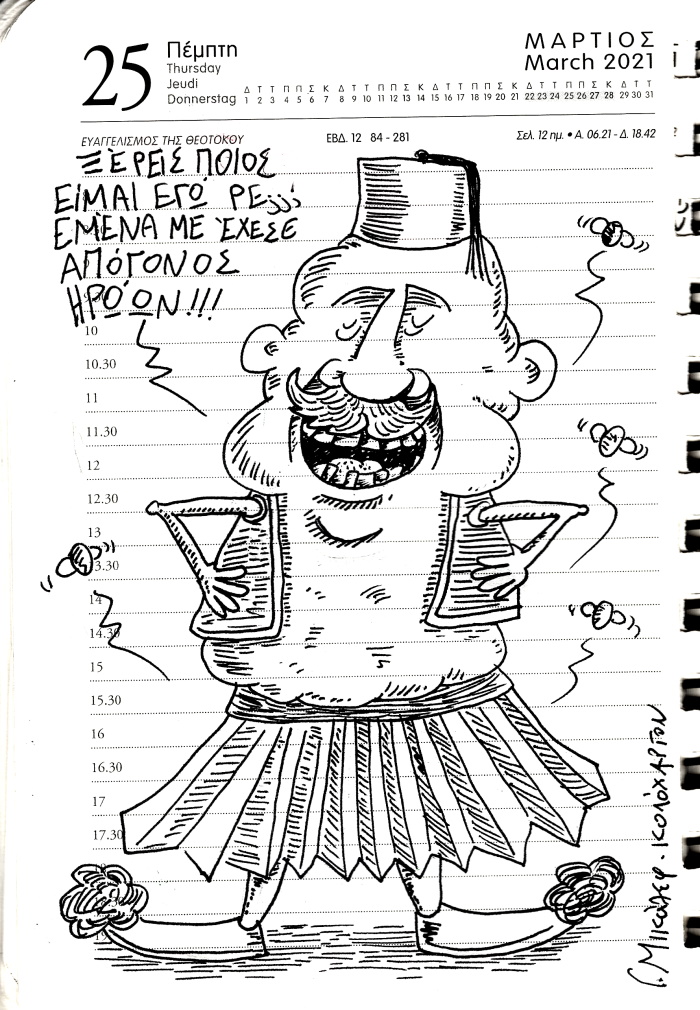 25
Πέμπτη
Thursday
Jeudi
Donnerstag
ΜΑΡΤΙΟΣ
March 2021
Δ Τ Τ Π Π Σ Κ Δ Τ Τ Π Π Σ Κ Δ Τ Τ Π Π Σ Κ Δ Τ Τ Π Π Σ Κ Δ Τ Τ
1 2 3 4 5 6 7 8 9 10 11 12 13 14 15 16 17 18 19 20 21 22 23 24 25 26 27 28 29 30 31
ΕΥΑΓΓΕΛΙΣΜΟΣ ΤΗΣ ΘΕΟΤΟΚΟΥ ΕΒΔ. 12 84 - 281 Σελ. 12 πμ. • Α. 06.21 - Δ. 18.42
ΞΈΡΕΙΣ ΠΟΙΟΣ
ΕΊΜΑΙ ΕΓΏ ΡΕ;;;
ΕΜΈΝΑ ΜΕ ΈΧΕΣΕ
ΑΠΌΓΟΝΟΣ
ΗΡΏΩΝ!!!
10
10.30
11
11.30
12
12.30
13
13.30
14
14.30
15
15.30
16
16.30
17
17.30